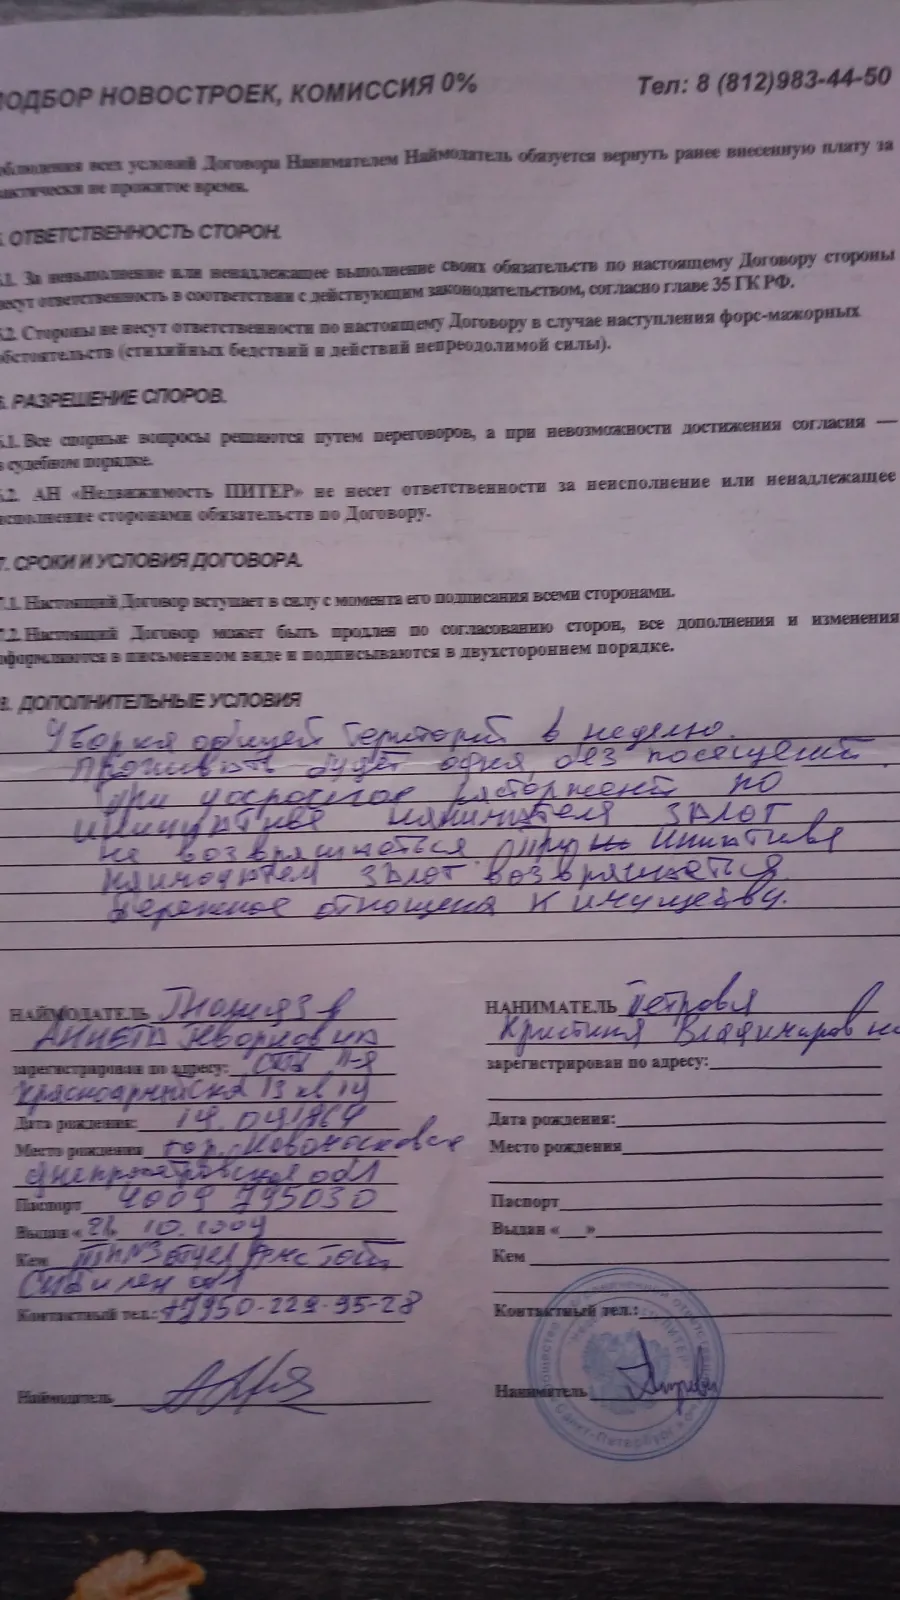 ПОДБОР НОВОСТРОЕК, КОМИССИЯ 0% Тел: 8 (812)983-44-50
облюдения всех условий Договора Нанимателем Наймодатель обязуется вернуть ранее внесенную плату за
актически не прожитое время.
. ОТВЕТСТВЕННОСТЬ СТОРОН.
.1. За невыполнение или ненадлежащее выполнение своих обязательств по настоящему Договору стороны
несут ответственность в соответствии с действующим законодательством, согласно главе 35 ГК РФ.
.2. Стороны не несут ответственности по настоящему Договору в случае наступления форс-мажорных
обстоятельств (стихийных бедствий и действий непреодолимой силы).
6. РАЗРЕШЕНИЕ СПОРОВ.
6.1. Все спорные вопросы решаются путем переговоров, а при невозможности достижения согласия —
в судебном порядке.
6.2. АН «Недвижимость ПИТЕР» не несет ответственности за неисполнение или ненадлежащее
исполнение сторонами обязательств по Договору.
7. СРОКИ И УСЛОВИЯ ДОГОВОРА.
7.1. Настоящий Договор вступает в силу с момента его подписания всеми сторонами.
7.2. Настоящий Договор может быть продлен по согласованию сторон, все дополнения и изменения
оформляются в письменном виде и подписываются в двухстороннем порядке.
8. ДОПОЛНИТЕЛЬНЫЕ УСЛОВИЯ
Уборка общей в неделю.
Проживать будет одна без посещений.
При по
нанимателя залог
не возвращаеться. При
залог возвращаеться
Бережное к имуществу.
НАЙМОДАТЕЛЬ
зарегистрирован по адресу:
Красноармейская 13 кв 14
Дата рождения:
Место рождения гор.
обл
Паспорт 4009 795030
Выдан «
Кем
обл
Контактный тел.: +7950-229-95-28
Наймодатель
НАНИМАТЕЛЬ Петрова
Кристина Владимировна
зарегистрирован по адресу:
Дата рождения:
Место рождения
Паспорт
Выдан «___»
Кем
Контактный тел.:
Наниматель